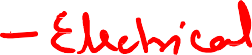 - Electrical